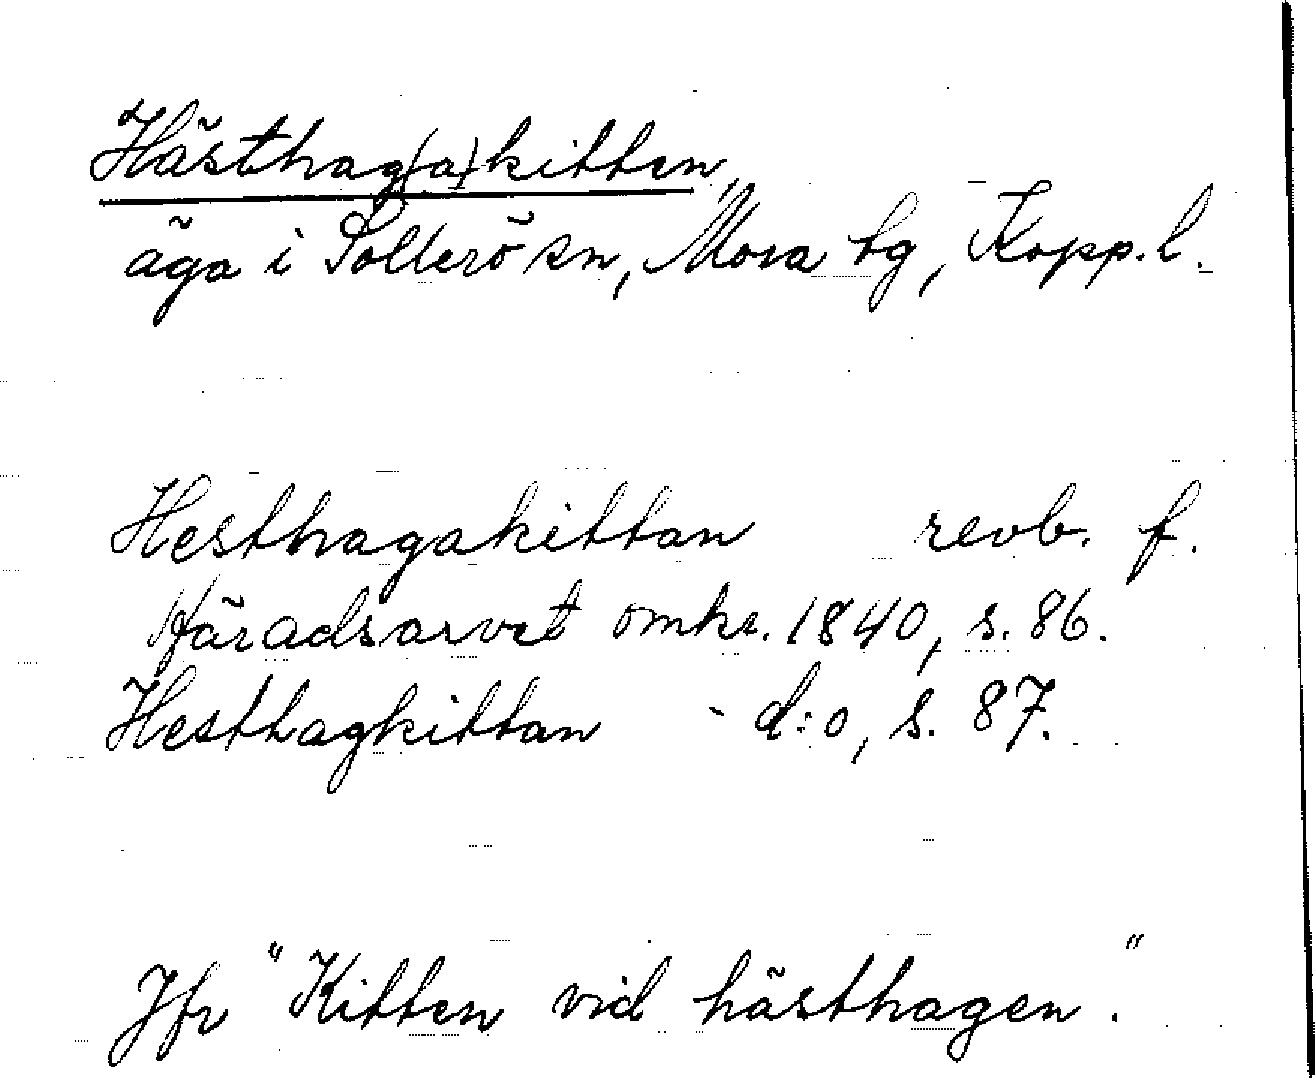 Hästhag(a)kitten,
äga i Sollerö sn, Mora tg, Kopp. l.
Hesthagakittan revb. f.
Häradsarvet omkr. 1840, s. 86.
Hesthagkittan - d:o, s. 87.
Jfr "Kitten vid hästhagen."